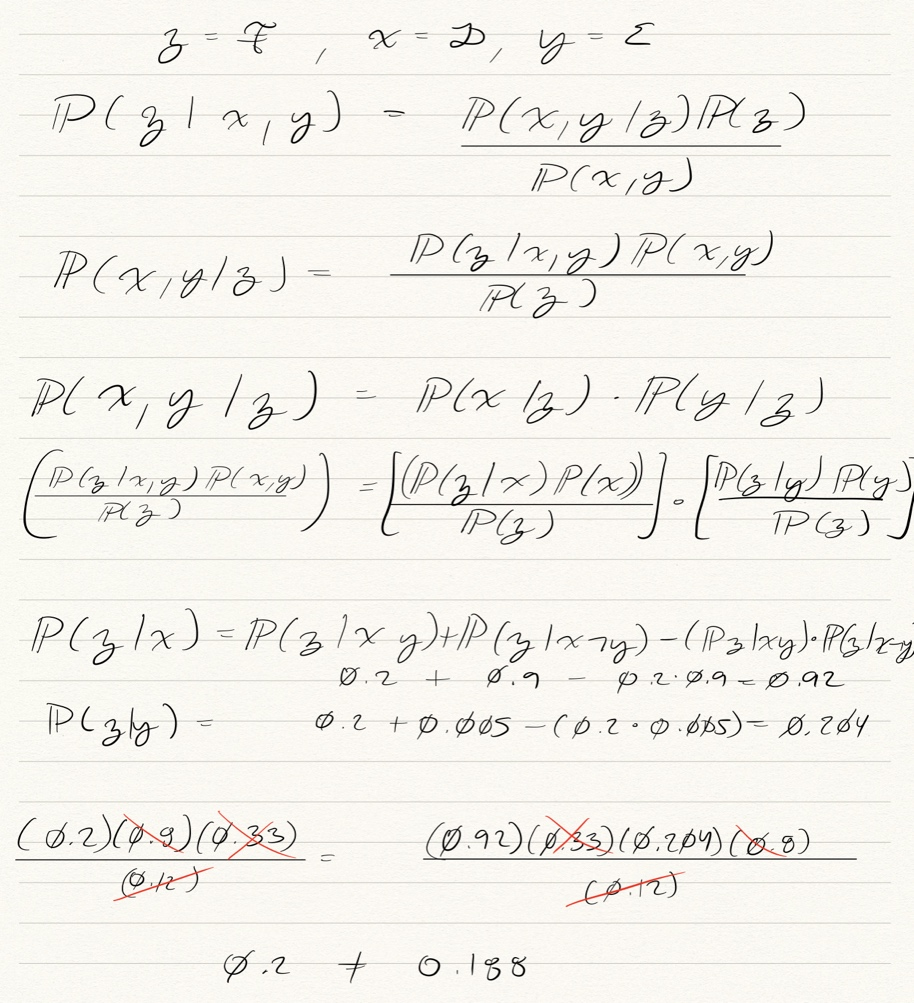 z = F , x = D, y = E
P(z | x, y) = P(x, y | z) P(z) / P(x, y)
P(x, y | z) = P(z | x, y) P(x, y) / P(z)
P(x, y | z) = P(x | z) · P(y | z)
(P(z | x, y) P(x, y) / P(z)) = [(P(z | x) P(x)) / P(z)] · [P(z | y) P(y) / P(z)]
P(z | x) = P(z | x y) + P(z | x ¬y) − (P z | xy) · P(z | x ¬y
0.2 + 0.9 − 0.2 · 0.9 = 0.92
P(z | y) = 0.2 + 0.005 − (0.2 · 0.005) = 0.204
(0.2)(0.8)(0.33) / (0.12) = (0.92)(0.33)(0.204)(0.8) / (0.12)
0.2 ≠ 0.188